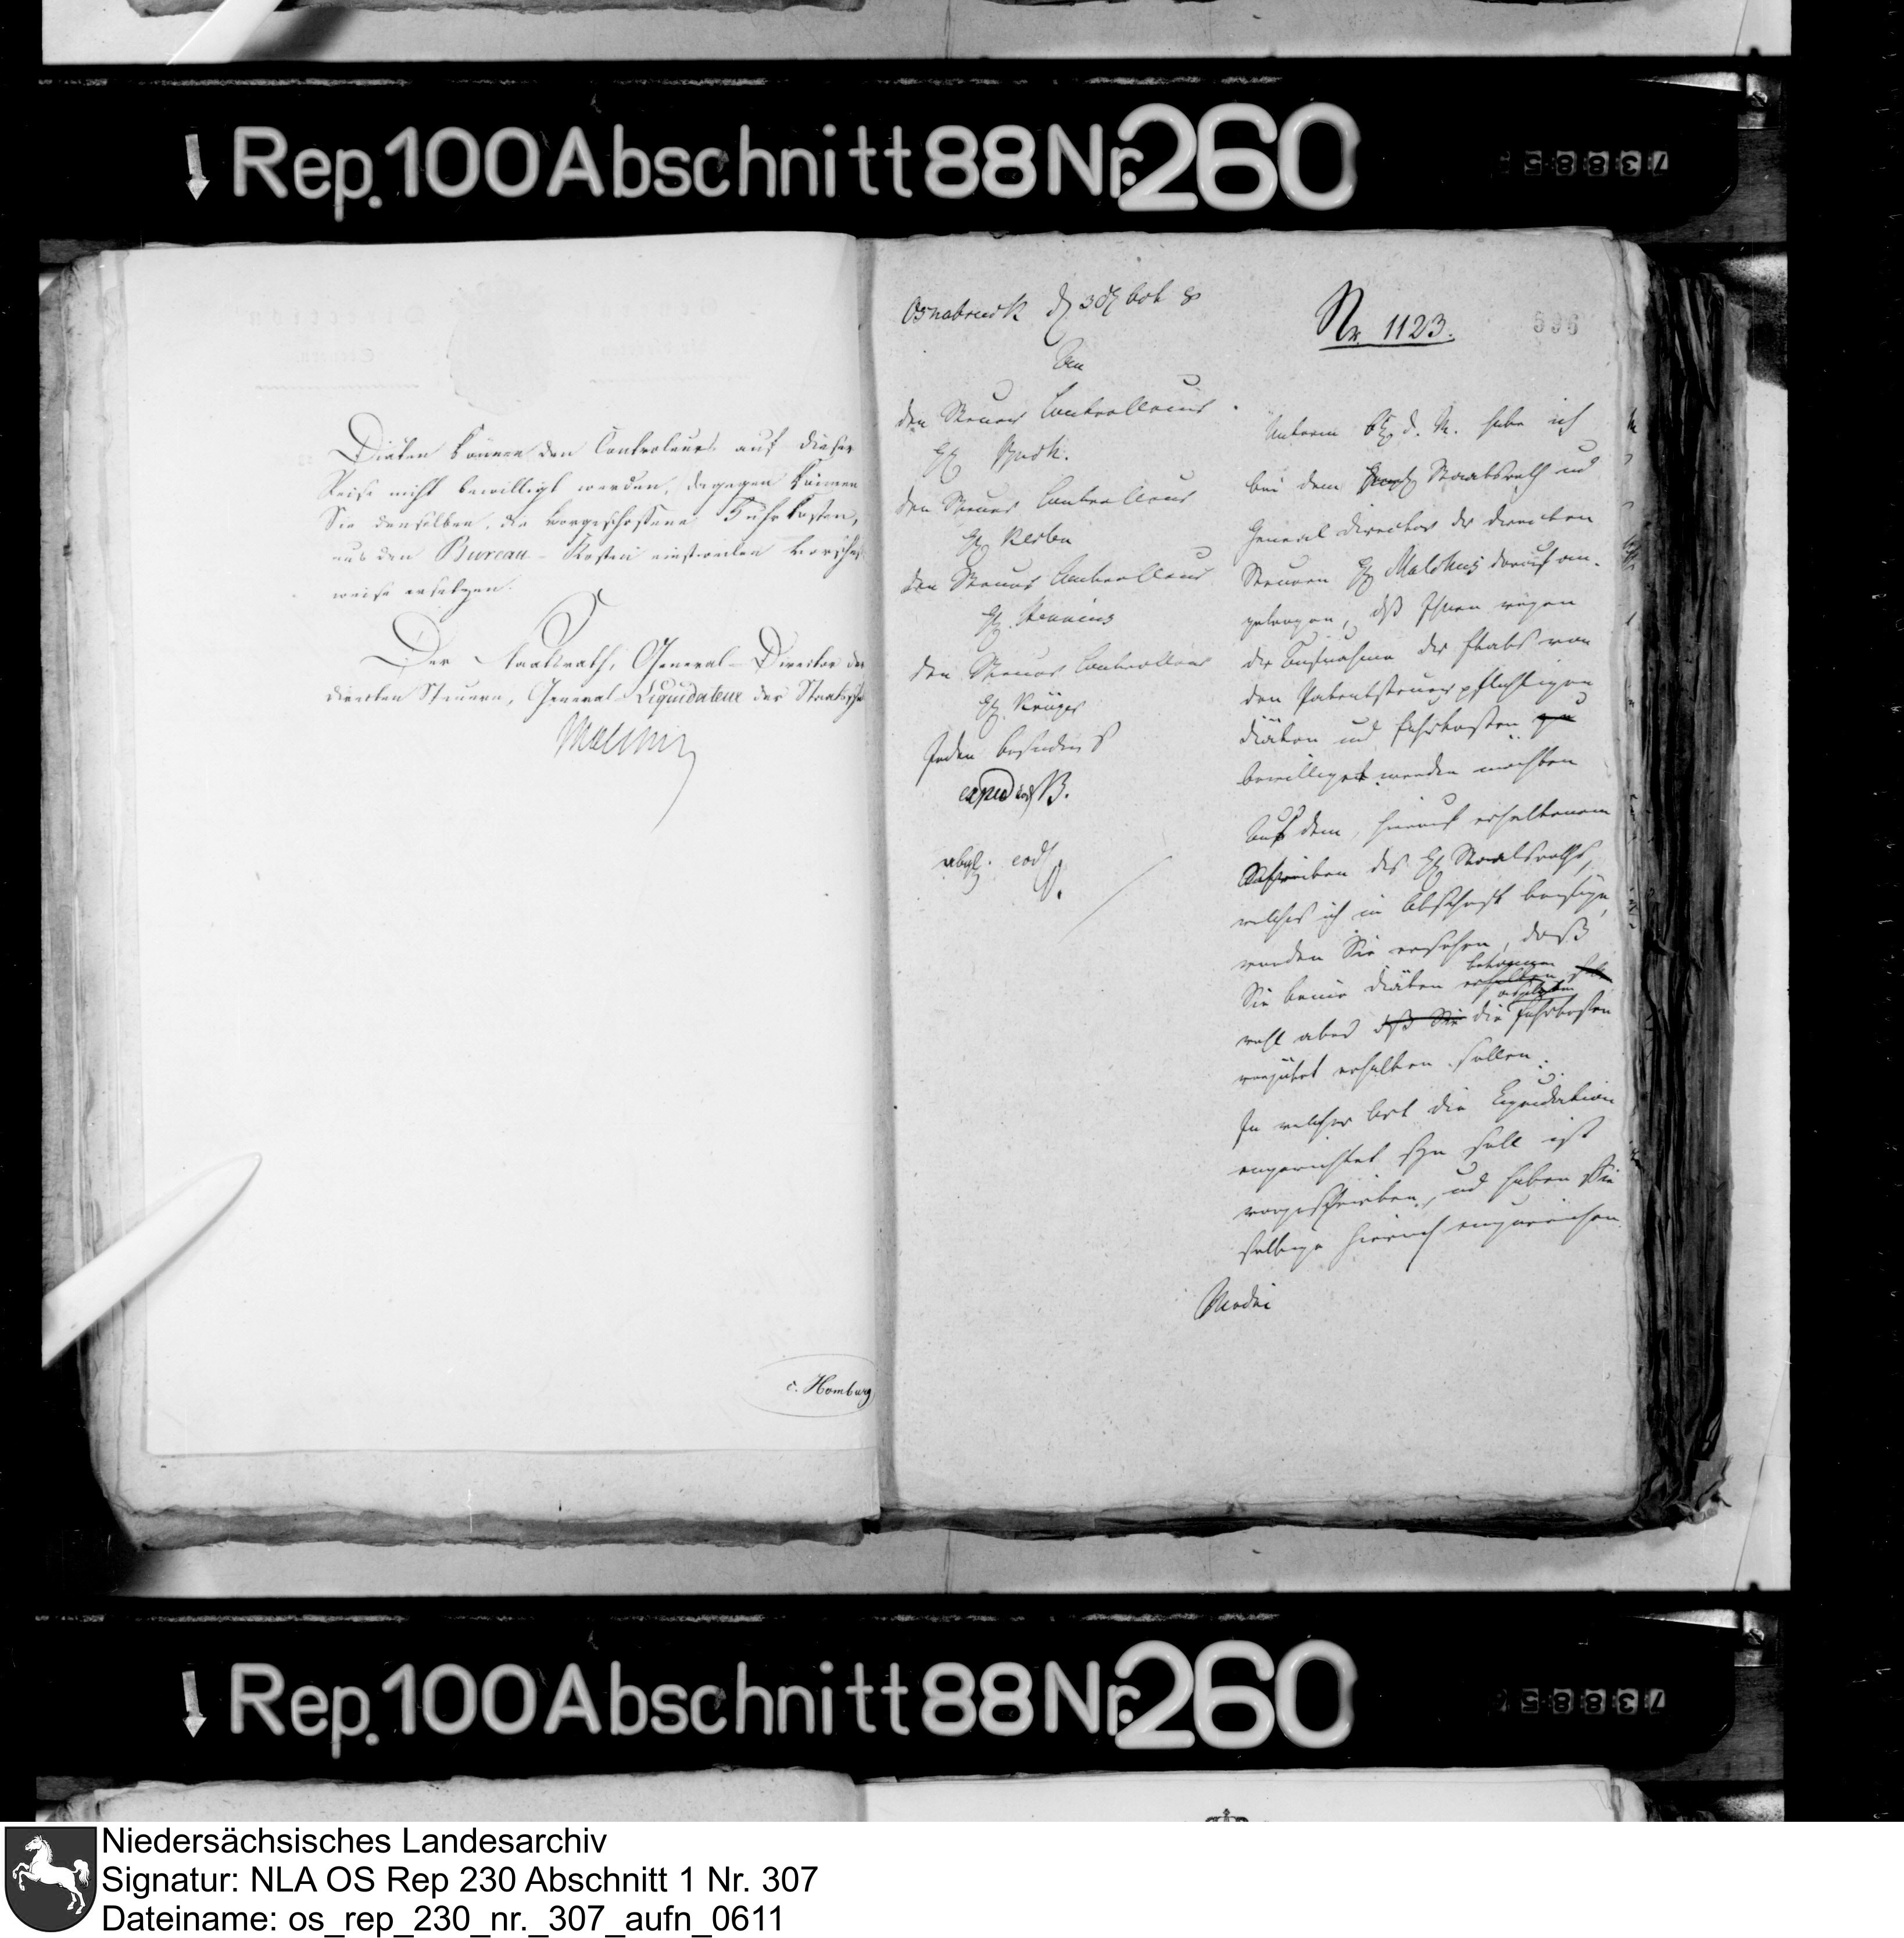 Rep. 100 Abschnitt 88 Nr. 260
73885
Diäten können den Controleurs auf dieser
Reise nicht bewilligt werden, dagegen können
Sie denselben, die vorgeschossene Fuhrkosten,
aus den Bureau-Kosten einstweilen vorschuß-
weise ersetzen.
Der Staatsrath, General-Director der
directen Steuern, General-Liquidateur der Staatssch
Malchus
c. Homburg
Osnabruck
Nr. 1123.
596
An
den Steuer Controlleur
H.
den Steuer Controlleur
H.
den Steuer Controlleur
H.
den Steuer Controlleur
H. Krüger
Jeden besonders
Unterm d. M. habe ich
bei dem Staatsrath und
General Director der directen
Steuern H. Malchus darauf an-
getragen, daß Ihnen wegen
der Aufnahme der Etats von
den Patentsteuerpflichtigen
Diäten und Fuhrkosten zu
bewilliget werden möchten
Aus dem, hierauf erhaltenem
Schreiben des H. Staatsraths,
welches ich in Abschrift beyfüge,
werden Sie ersehen, daß
bekommen
Sie keine Diäten erhalten
wohl aber daß Sie die Fuhrkosten
vergütet erhalten sollen.
In welcher Art die Liquidation
eingerichtet seyn soll ist
vorgeschrieben, und haben Sie
selbige hienach einzureichen
Rep. 100 Abschnitt 88 Nr. 260
73885
Niedersächsisches Landesarchiv
Signatur: NLA OS Rep 230 Abschnitt 1 Nr. 307
Dateiname: os_rep_230_nr._307_aufn_0611